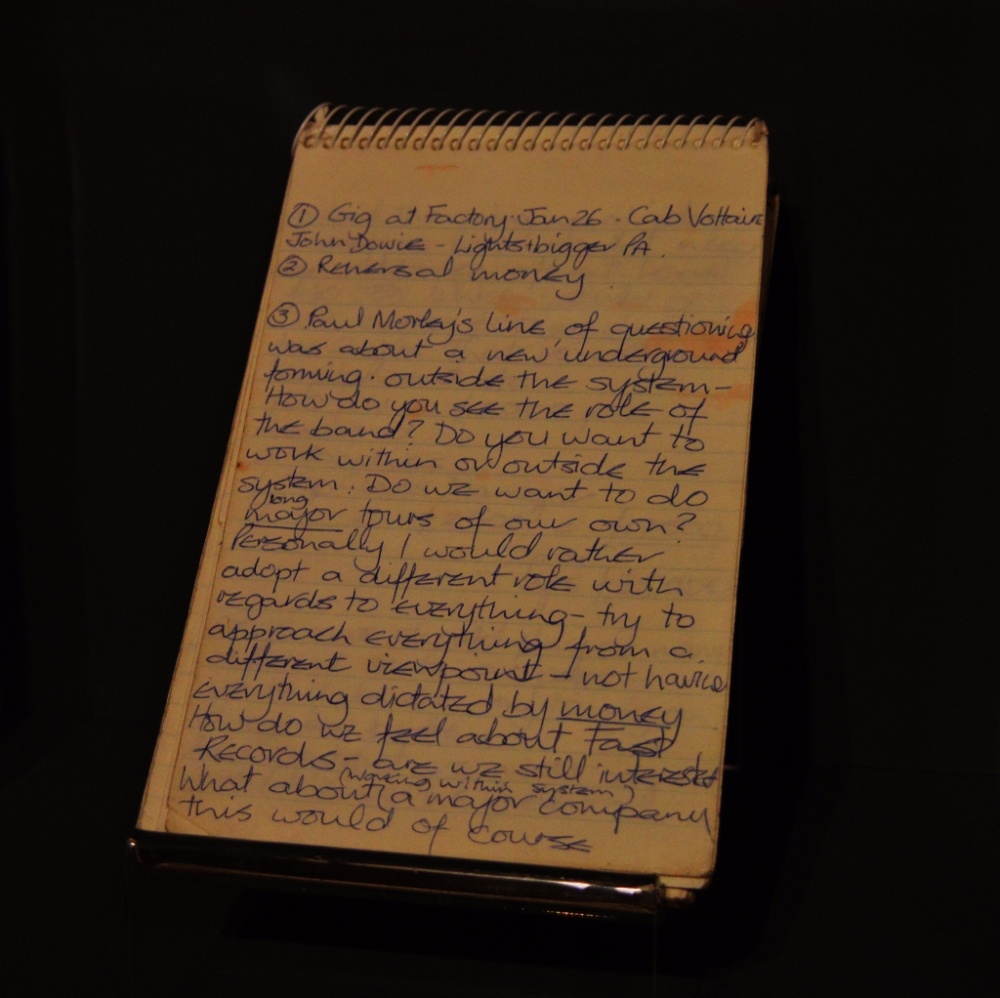 ① Gig at Factory · Jan 26 · Cab Voltaire
John Dowie - Lights+bigger PA.
② Rehersal money
③ Paul Morley's line of questioning
was about a new 'underground'
forming · outside the system -
How do you see the role of
the band? Do you want to
work within or outside the
system. Do we want to do
long
major tours of our own?
Personally I would rather
adopt a different role with
regards to everything - try to
approach everything from a
different viewpoint - not having
everything dictated by money
How do we feel about Fast
Records - are we still interested
(working within system)
What about a major company
this would of course